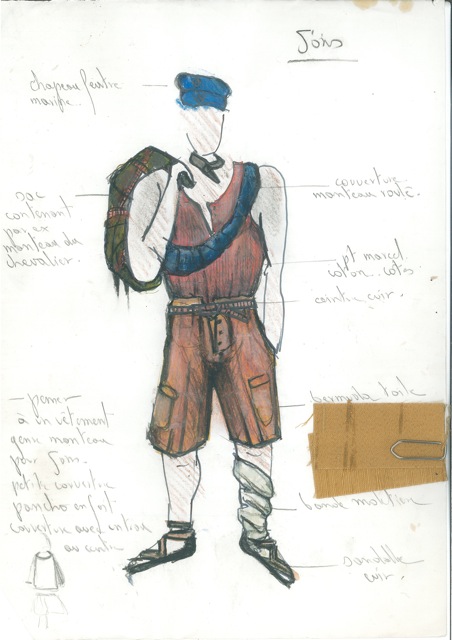 Jöns
chapeau feutre
marine.
sac
contenant
par ex
manteau du
chevalier.
couverture
manteau roulé.
pt marcel
coton.. côtes
ceinture cuir.
bermuda toile
bande molletière
sandale
cuir.
- penser
à un vêtement
genre manteau
pour Jöns.
petite couverture
poncho en fait
couverture avec un trou
au centre